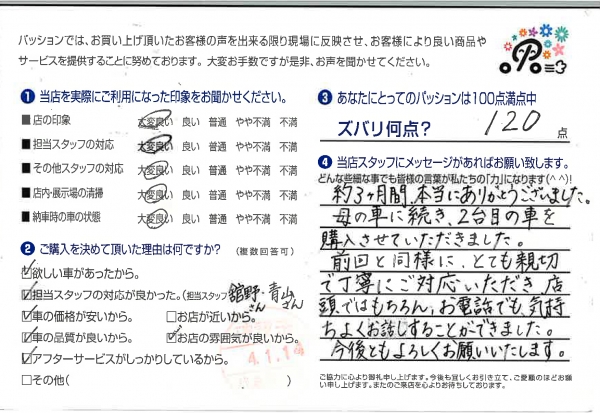 パッションでは、お買い上げ頂いたお客様の声を出来る限り現場に反映させ、お客様により良い商品や
サービスを提供することに努めております。 大変お手数ですが是非、お声を聞かせてください。
❶ 当店を実際にご利用になった印象をお聞かせください。
■ 店の印象 大変良い 良い 普通 やや不満 不満
■ 担当スタッフの対応 大変良い 良い 普通 やや不満 不満
■ その他スタッフの対応 大変良い 良い 普通 やや不満 不満
■ 店内・展示場の清掃 大変良い 良い 普通 やや不満 不満
■ 納車時の車の状態 大変良い 良い 普通 やや不満 不満
❷ ご購入を決めて頂いた理由は何ですか? (複数回答可)
☑欲しい車があったから。
☑担当スタッフの対応が良かった。(担当スタッフ 舘野さん・青山さん
☑車の価格が安いから。 □お店が近いから。
☑車の品質が良いから。 ☑お店の雰囲気が良いから。
☑アフターサービスがしっかりしているから。
□その他( )
4.1.14
❸ あなたにとってのパッションは100点満点中
ズバリ何点? 120 点
❹ 当店スタッフにメッセージがあればお願い致します。
どんな些細な事でも皆様の言葉が私たちの「力」になります(^^)!
約3ヶ月間、本当にありがとうございました。
母の車に続き、2台目の車を
購入させていただきました。
前回と同様に、とても親切
で丁寧にご対応いただき、店
頭ではもちろん、お電話でも、気持
ちよくお話しすることができました。
今後ともよろしくお願いいたします。
ご協力に心より御礼申し上げます。今後も宜しくお引き立て、ご愛顧のほどお願い申し上げます。またのご来店を心よりお待ちしております。